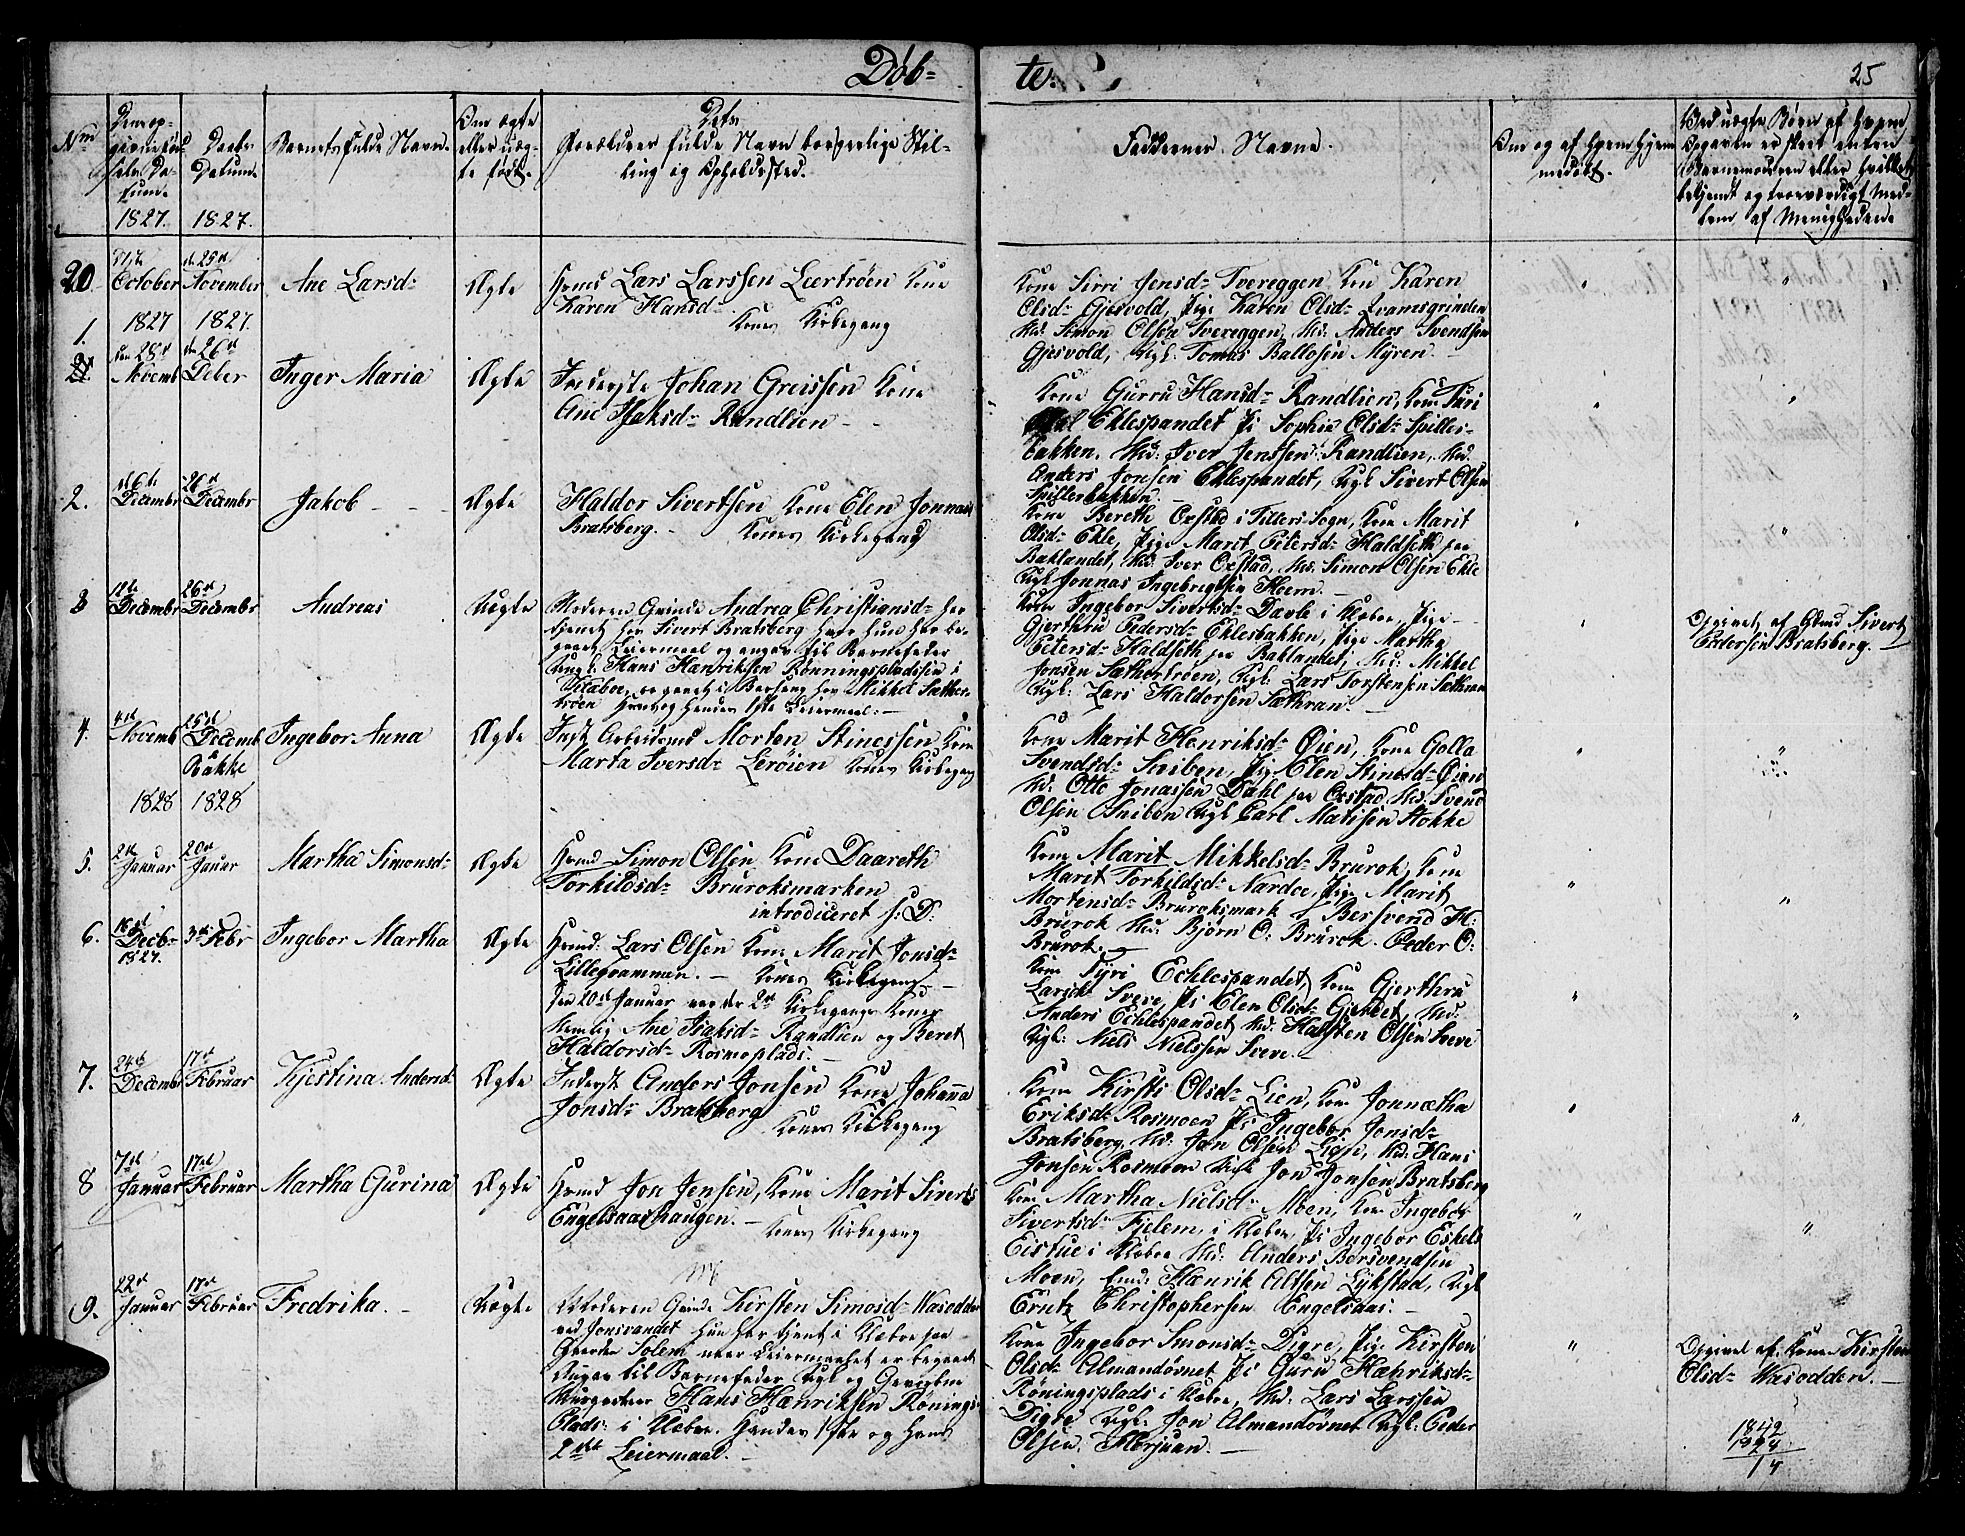 Døb=
te.
25
Nm
Den op-
givne Fød-
sels Da-
tum.
1827.
Daabs
Datum.
1827.
Barnets fulde Navn.
Om ægte
eller uæg-
te født.
Dets
Forældres fulde Navn borgerlige Stil-
ling og Opholdssted.
Faddernes Navne.
Om og af hvem hjem-
medøbt.
Ved uægte Børn af hvem
Opgaven er skeet enten
Barnemoderen eller hvilket
bekjendt og troværdigt Med-
lem af Menighederne
20
October
d 25de
November
Ane Larsd=
Ægte
Huusm Lars Larssen Leertrøen Kone
Karen Hansd=
Kones Kirkegang
Kone Sirri Jensd= Tvereggen, Kone Karen
Olsd= Gjesvold, Pige Karen Olsd= Qvamsgrinden
Md: Simon Olsen Tvereggen, Md: Anders Svendsen
Gjesvold, Ugk: Tomas Ballosen Myren.
1827
1827.
1.
21.
den 28de
Novemb
den 26de
Deber
Inger Maria
Ægte
Inderste Johan Greissen Kone
Ane Isaksd= Randlien
Kone Gurru Hansd= Randlien, Kone Turi
Eklespandet Pi Sophia Olsd= Spilles-
bakken. Md: Iver Jenssen Randlien, Md:
Anders Jonsen Eklespandet, Ugk Sivert Olsen
Spillerbakken
2.
d 6te
Decembr
26de
Decembr
Jakob
Ægte
Haldor Sivertsen Kone Elen Jonnasd
Bratsberg. Kones Kirkegang
Kone Bereth Oxstad i Tillers Sogn, Kone Marit
Olsd= Ekle, Pige Marit Petersd= Haldseth paa
Baklandet, Md: Iver Oxstad, Md: Simon Olsen Ekle
Ugk Jonnas Ingebrigtsen Hoem.
3
12te
Decembr
26de
Decembr
Andreas
Uægte
Moderen Qvinde Andrea Christiansd= har
tjent hos Sivert Bratsberg hvor hun har be-
gaaet Leiermaal og angav til Barnefader
Ungk: Hans Henriksen Rønningspladsen i
Klæboe, er gaaet i Barseng hos Mikkel Sæther-
trøen hans og hendes 1ste Leiermaal.
Kone Ingebor Sivertsd= Davle i Klæboe, Pige
Gjerthru Pedersd= Eklesbakken, Pige Martha
Petersd= Haldseth paa Baklandet, Md: Mikkel
Jonsen Sæthertrøen, Ugk: Lars Torstensen Sæthran
Ugk: Lars Haldorsen Sæthran.
Opgivet af Gbmd Sivert
Pedersen Bratsberg.
4.
4de
Novemb
25de
Decemb
Bakke
Ingebor Anna
Ægte
Inds Arbeidsmd Morten Stinessen Kone
Marta Iversd= Lerøien Kones Kirkegang
Kone Marit Henriksd= Øien, Kone Golla
Svendsd= Sniben, Pige Elen Stinesd= Øien
Md: Otte Jonassen Dahl paa Oxstad, Md: Svend
Olsen Sniben Ugk Carl Matisen Stokke
1828
1828
5.
2de
Januar
20de
Januar
Martha Simonsd=
Ægte
Huusmd Simon Olsen Kone Daareth
Torkildsd= Bruroksmarken
introduceret s: D:
Kone Marit Mikkelsd= Brurok, Kone
Marit Torkildsd= Nardoe, Pige Marit
Mortensd= Bruroksmark, Bersvend H:
Brurok Md: Bjørn O: Brurok. Peder O:
Brurok.
6.
16de
Decbr
1827.
3de Febr
Ingebor Martha
Ægte
Huusmd: Lars Olsen Kone Marit Jonsd=
Lillegrammen. Kones Kirkegang
den 20de Januar var der 2de Kirkegangs Koner
Nemlig Ane Isaksd= Randlien og Beret
Haldorsd= Rosmoplads.
Kone Tyri Echlespandet, Kone Gjerthru
Larsd= Sveve, Pi Elen Olsd= Gjendet, Md:
Anders Echlespandet, Md: Halsten Olsen Sveve
Ugk: Niels Nielssen Sveve.
7.
24de
Decembr
17de
Februar
Kjestina Andersd.
Ægte
Inderst Anders Jonsen Kone Johanna
Jonsd= Bratsberg
Kones Kirkegang
Kone Kirsti Olsd= Lien, Kone Jonnetha
Eriksd= Rosmoen Pi Ingebor Jonsd=
Bratsberg, Md: Jon Olsen Lien, Md: Hans
Jonsen Rosmoen Ugk Jon Jonsen Bratsberg
8
7de
Januar
17de
Februar
Martha Gurina
Ægte
Huusmd Jon Jensen, Kone Marit Siverts
Engelsaashaugen.
Kones Kirkegang
Kone Martha Nielsd= Moen, Kone Ingebor
Sivertsd= Fjelem, i Klæboe, Pi Ingebor Eskels
Eistue i Klæboe Md: Anders Bersvendsen
Moen, Hmd: Henrik Olssen Lykstad, Ugk
Erntz Christophersen Engelsaas.
9.
22de
Januar
17de
Februar
Fredrika.
Uægte
Moderen Qvinde Kirsten Simosd= Wasodden
ved Jonsvandet hun har tjent i Klæboe paa
Gaarden Solem naar Leiermaalet er begaaet
Angav til Barnefader Ugk og Gevorben
Musqueteer Hans Hænriksen Rønings
Plads i Klæboe. Hendes 1ste og hans
2det Leiermaal.
Kone Ingebor Smonsd= Digre, Pige Kirsten
Olsd= Almandøvnet Pi Guru Hænriksd=
Røningsplads i Klæboe, Md: Lars Larssen
Digre Ugk: Jon Almandøvnet Ugk: Peder
Olsen Florjuan.
Opgivet af Kone Kirsten
Olsd= Wasodden.
1842
1824
14